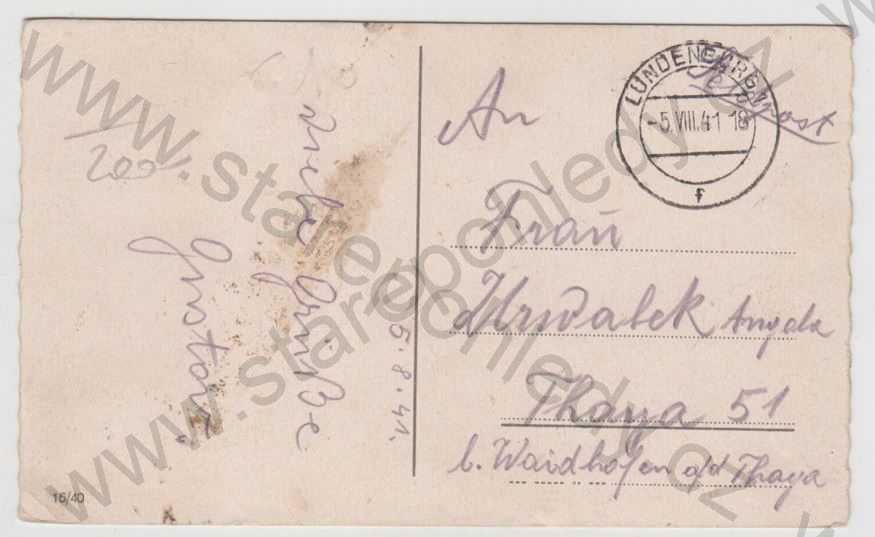 200
5.8.41.
Viele Grüße
Gustav
16/40
LUNDENBURG 1
-5.VIII.41 18
f
Feldpost
An
Frau
Urwalek Angela
Thaya 51
b. Waidhofen a/d Thaya
www.starepohledy.cz